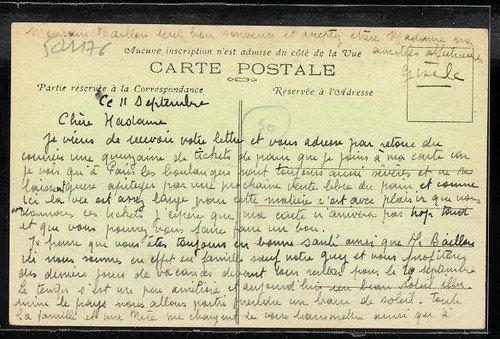 Monsieur Baillou leur bon souvenir et acceptez chère Madame mes
amitiés affectueuses
Gisèle
Aucune inscription n'est admise du côté de la Vue
CARTE POSTALE
Partie réservée à la Correspondance
Réservée à l'Adresse
50
Ce 11 Septembre
Chère Madame
Je viens de recevoir votre lettre et vous adresse par retour du
courrier une quinzaine de tickets de pain que je joins à ma carte car
je vois qu'à Paris les boulangers sont toujours aussi sévères et ne se
par une prochaine vente libre du pain, et comme
ici la vie est assez large pour cette matière c'est avec plaisir que nous
donnons ces tickets. J'espère que ma carte n'arrivera pas trop tard
et que vous pourrez vous faire faire un bon.
Je pense que vous êtes toujours en bonne santé ainsi que M. Baillou
ici nous sommes en effet en famille sauf notre Guy et vous profitez
des derniers jours de vacances devant rentrer pour le 19 septembre
Le temps s'est un peu amélioré et aujourd'hui un beau soleil
le pays nous allons partir prendre un bain de soleil. Toute
la famille et ma Mère me chargent de vous transmettre ainsi que à